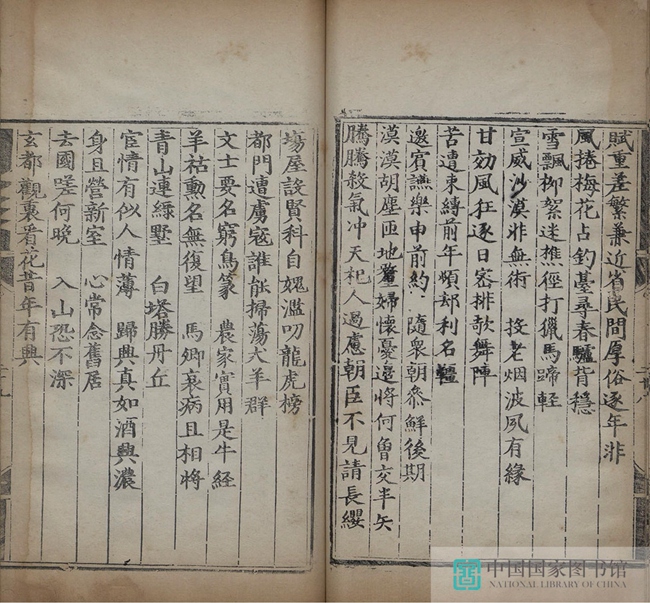 賦重差繁兼近省民間厚俗逐年非
風捲梅花占釣臺尋春驢背穩
雪飄柳絮迷樵徑打獵馬蹄輕
宣威沙漠非無術　投老烟波夙有緣
甘効風狂逐日審排歌舞陣
苦遭束縛前年頓却利名韁
邀賓讌樂申前約　隨衆朝參鮮後期
漠漠胡塵匝地嫠婦懷憂邊將何曾交半矢
騰騰殺氣冲天杞人過慮朝臣不見請長纓
塲屋設賢科自媿濫叨龍虎榜
都門遭虜寇誰能掃蕩犬羊群
文士要名窮鳥篆　農家實用是牛經
羊祜勲名無復望　馬卿衰病且相將
青山連綠墅　白塔勝丹丘
宦情有似人情薄　歸興真如酒興濃
身且營新室　心常念舊居
去國嗟何晚　入山恐不深
玄都觀裏看花昔年有興
中国国家图书馆
NATIONAL LIBRARY OF CHINA